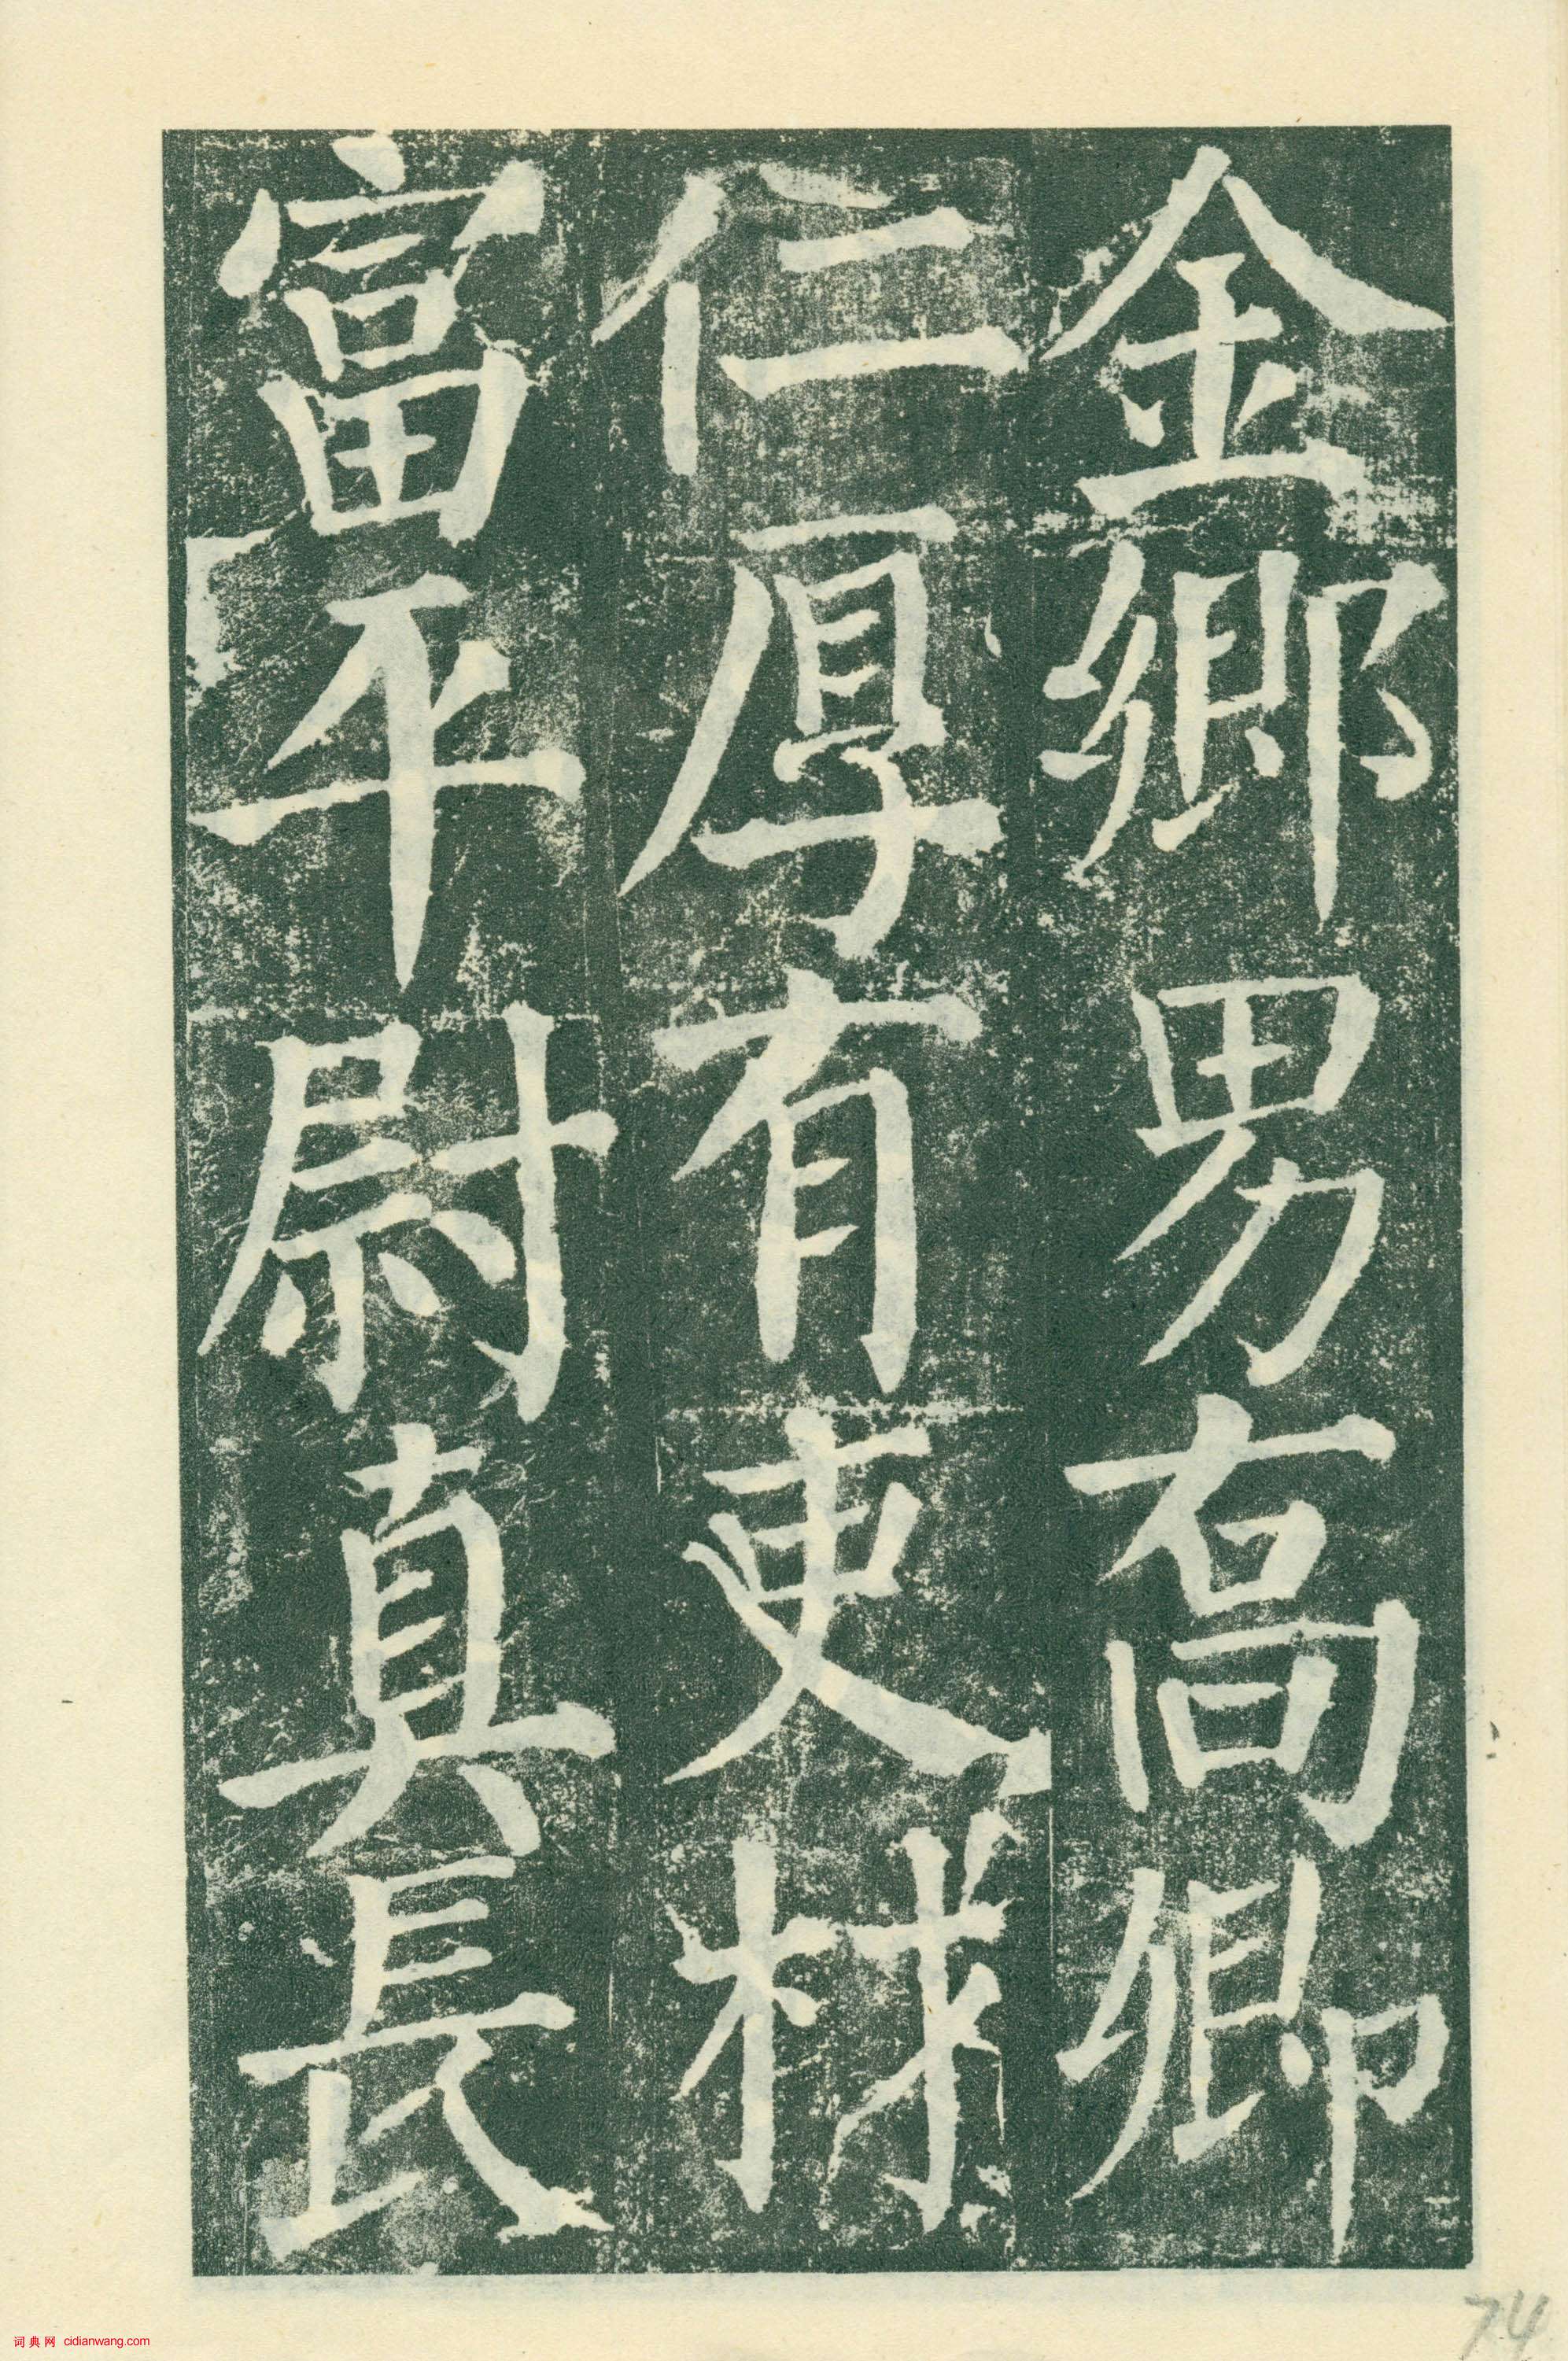 金鄉男高卿
仁厚有吏材
富平尉真長
74
词典网 cidianwang.com